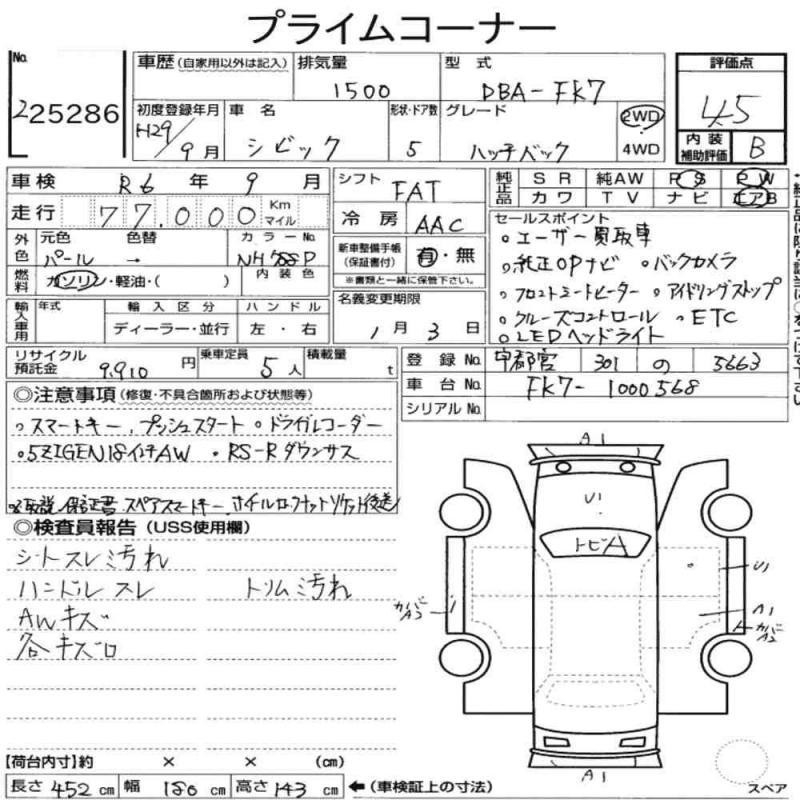 プライムコーナー
No. 225286
車歴 (自家用以外は記入) 排気量 1500 型式 DBA-FK7
評価点 4.5
初度登録年月 H29/9月 車名 シビック 形状・ドア数 5 グレード ハッチバック 2WD 4WD
内装補助評価 B
車検 R6年9月 シフト FAT 純正品 SR 純AW PS PW
カワ TV ナビ エアB
走行 77,000 Km マイル 冷房 AAC
外色 元色 パール 色替 → カラーNo. NH788P
新車整備手帳 (保証書付) 有・無
※書類と一緒に保管下さい。
燃料 ガソリン・軽油・( ) 内装色
セールスポイント
・ユーザー買取車
・純正OPナビ ・バックカメラ
・フロントシートヒーター ・アイドリングストップ
・クルーズコントロール ・ETC
・LEDヘッドライト
輸入車用 年式 輸入区分 ハンドル
ディーラー・並行 左・右
名義変更期限 1月3日
リサイクル預託金 9,910円 乗車定員 5人 積載量 t
登録No. 宇都宮 301 の 5663
車台No. FK7-1000568
シリアルNo.
◎注意事項 (修復・不具合箇所および状態等)
・スマートキー, プッシュスタート ・ドライブレコーダー
・5ZIGEN18インチAW ・RS-Rダウンサス
※取説, 保証書, スペアスマートキー, ホイールロックナットソケット後送
◎検査員報告 (USS使用欄)
シートスレ汚れ
ハンドルスレ トリム汚れ
AWキズ
各キズ
A1
U1
トビA
カバーA2
U1
A1
カバーA2
A1
スペア
【荷台内寸】約 × × (cm)
長さ 452 cm 幅 180 cm 高さ 143 cm ←(車検証上の寸法)